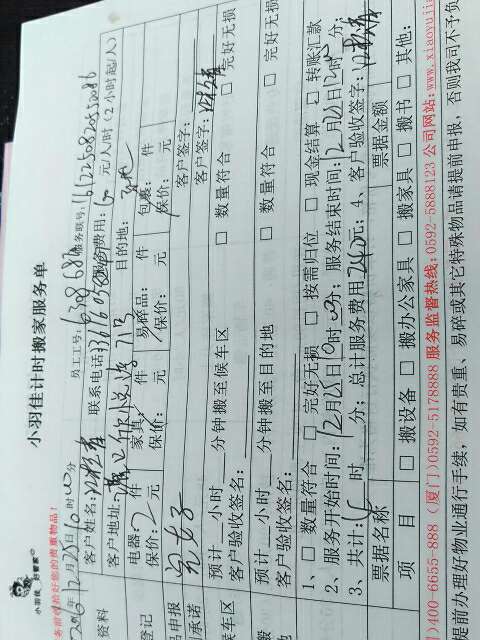 小羽佳计时搬家服务单
小羽佳 好管家
员工工号：6208 683 服务联号：
2016年12月25日10时00分
客户姓名： 联系电话： 服务费用：60元/人/时（2小时起/人）
客户地址： 目的地：
资料
登记
电器：2件 家具：件 易碎品：件 包裹：件
保价：2元 保价：元 保价：元 保价：元
品申报
承诺
客户签字：
客户签字：
候车区 预计 小时 分钟搬至候车区 □ 数量符合 □ 完好无损
客户验收签名：
预计 小时 分钟搬至目的地 □ 数量符合 □ 完好无损
客户验收签名：
1、□ 数量符合 □ 完好无损 □ 按需归位 □ 现金结算 □ 转账汇款
2、服务开始时间：12月25日10时 分；服务结束时间：12月25日12时 分
3、共计： 时 分；总计服务费用240元；4、客户验收签字：
票据名称 票据金额
项目 □ 搬设备 □ 搬办公家具 □ 搬家具 □ 搬书 □ 其他：
)400-6655-888（厦门)0592-5178888 服务监督热线：0592-5888123 公司网站：www.xiaoyuji
提前办理好物业通行手续，如有贵重、易碎或其它特殊物品请提前申报，否则我司不予负